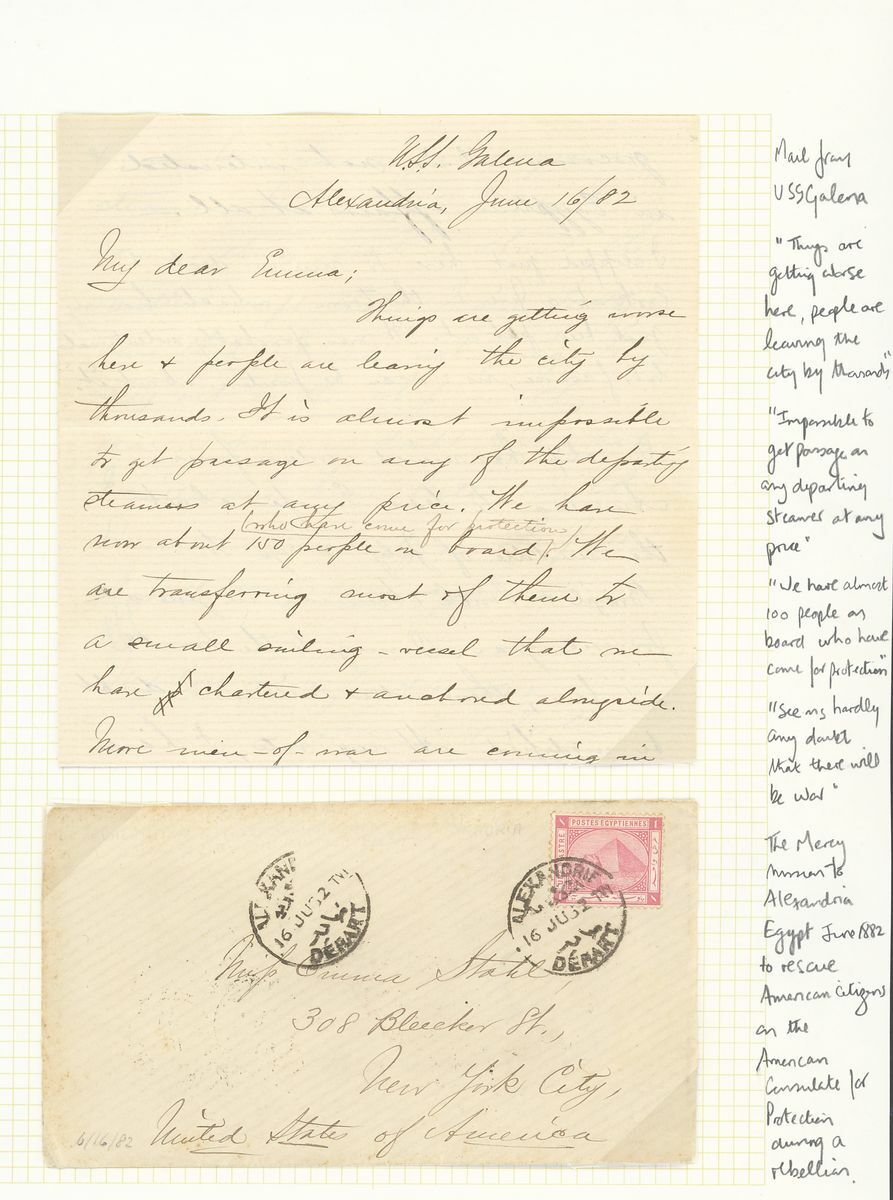 U.S.S. Galena
Alexandria, June 16/82
My dear Emma;
Things are getting worse
here & people are leaving the city by
thousands. It is almost impossible
to get passage on any of the departing
steamers at any price. We have
(who have come for protection)
now about 150 people on board. We
are transferring most of them to
a small sailing-vessel that we
have chartered & anchored alongside.
More men-of-war are coming in
ALEXANDRIE
16 JU 82
DÉPART
POSTES EGYPTIENNES
ALEXANDRIE
16 JU 82
DÉPART
Miss Emma Stahl,
308 Bleecker St.,
New York City,
United States of America
6/16/82
Mail from
USS Galena
"Things are
getting worse
here, people are
leaving the
city by thousands"
"Impossible to
get passage on
any departing
steamer at any
price"
"We have almost
100 people on
board who have
come for protection"
"Seems hardly
any doubt
that there will
be war"
The Mercy
mission to
Alexandria
Egypt June 1882
to rescue
American Citizens
on the
American
Consulate for
Protection
during a
rebellion.